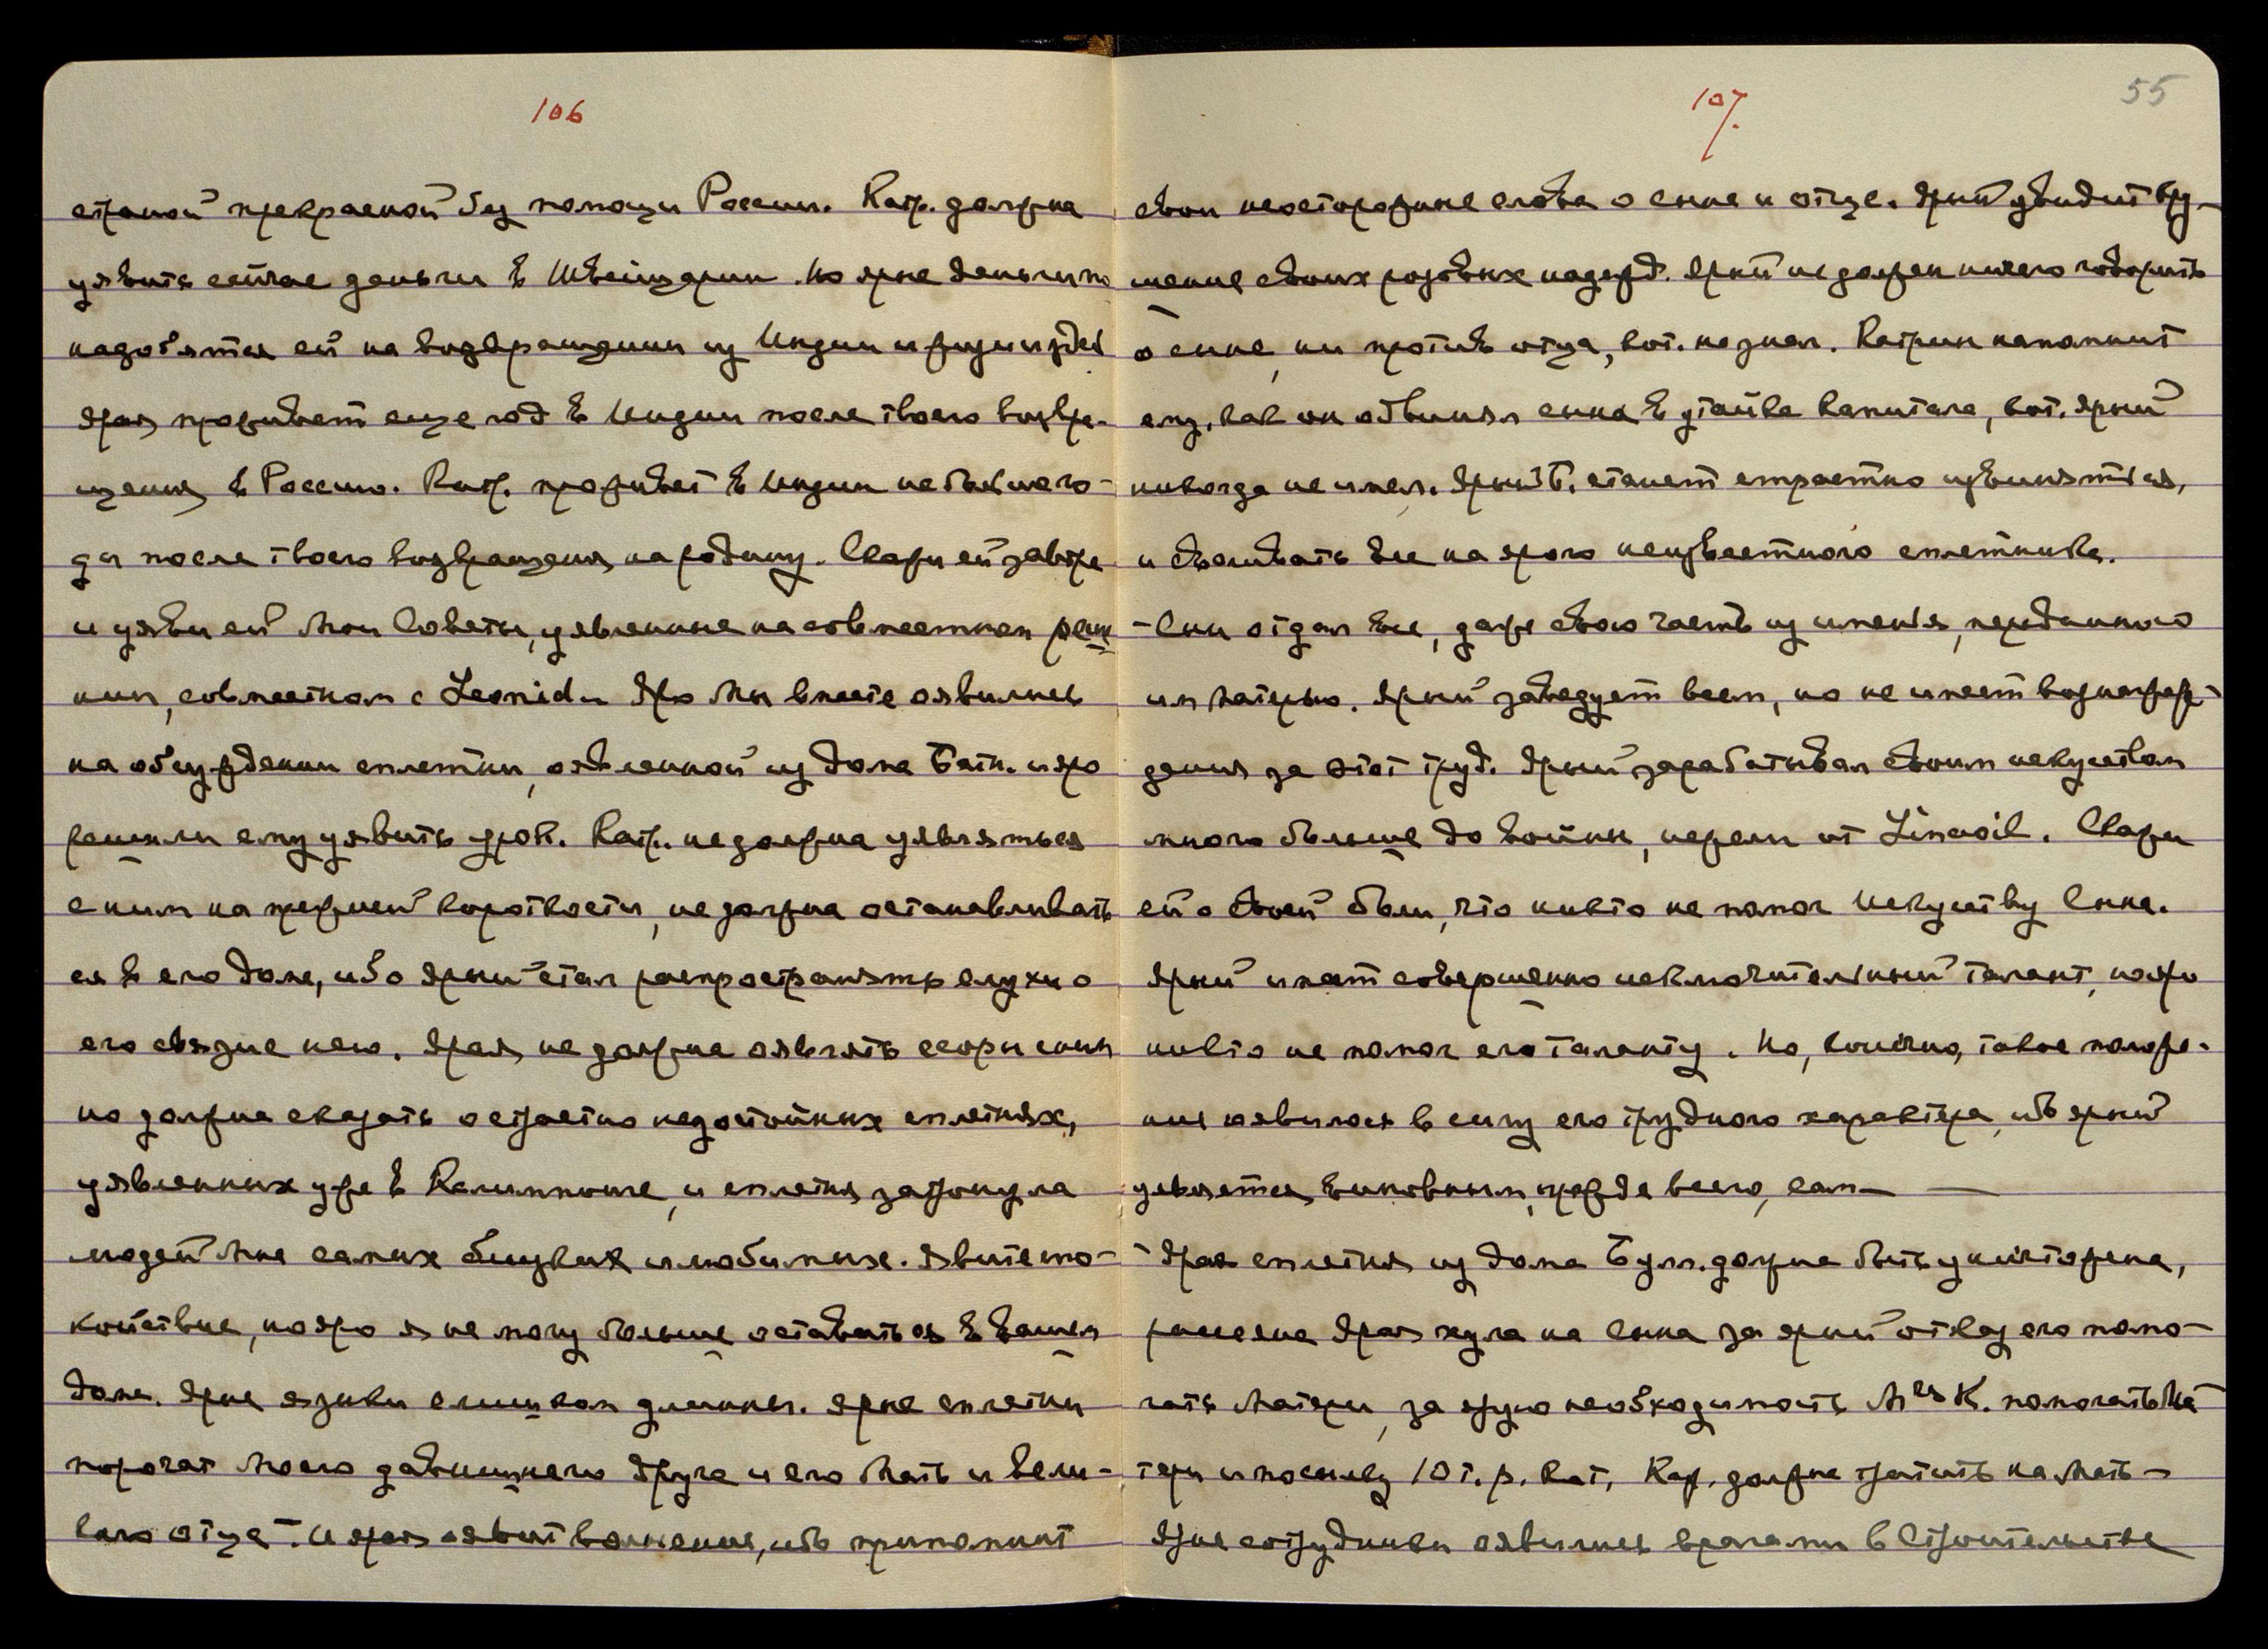 106
страной прекрасной без помощи России. Катр. должна
уявить сейчас деньги в Швейцарии. Но ярые деньги по
надобятся ей на возвращении из Индии и жизни здесь
Ярая проживет еще год в Индии после твоего возвра-
щения в Россию. Катр. проживет в Индии не больше го-
да после твоего возвращения на родину. Скажи ей завтра
и уяви ей Мои Советы, уявленные на совместном реше
нии, совместном с Leonid и Яро Мы вместе оявились
на обсуждении сплетни, оявленной из дома Батн. и яро
решили ему уявить урок. Катр. не должна уявляться
с ним на прежней короткости, не должна останавливать
ся в его доме, ибо ярый стал распространять слухи о
его связи с нею. Ярая не должна оявлять ссоры с ним
но должна сказать о страстно недостойных сплетнях,
уявленных уже в Калимпонге, и сплетня затронула
людей Мне самых близких и любимых. Явите спо-
койствие, но яро я не могу больше оставаться в вашем
доме. Ярые языки слишком длинны. Ярые сплетни
порочат Моего давнишнего Друга и его Мать и вели-
кого отца". И ярая оявит волнение, ибо припомнит
107.
55
свои неосторожные слова о сыне и отце. Ярый увидит кру-
шение своих розовых надежд. Ярый не должен ничего говорить
о сыне, ни против отца, кот. не знал. Катрин напомнит
ему, как он обвинял сына в утайке капитала, кот. ярый
никогда не имел. Ярый Б. станет страстно извиняться,
и сваливать все на ярого неизвестного сплетника.
- Сын отдал все, даже свою часть из имения, переданного
им Матерью. Ярый заведует всем, но не имеет вознаграж-
дения за этот труд. Ярый зарабатывал своим искусством
много больше до войны, нежели от Linaoil. Скажи
ей о своей боли, что никто не помог Искусству Сына.
Ярый имеет совершенно исключительный талант, но яро
никто не помог его таланту. Но, конечно, такое положе-
ние оявилось в силу его трудного характера, ибо ярый
уявляется виновным, прежде всего, сам —
- Ярая сплетня из дома Булл. должна быть уничтожена,
рассеяна Ярая хула на Сына за ярый отказ его помо-
гать Матери, за ярую необходимость M-es К. помогать Ма
тери и посылку 10 т. р. Кат, Кар. должна тратить на Мать —
Ярые сотрудники оявились врагами в Строительстве